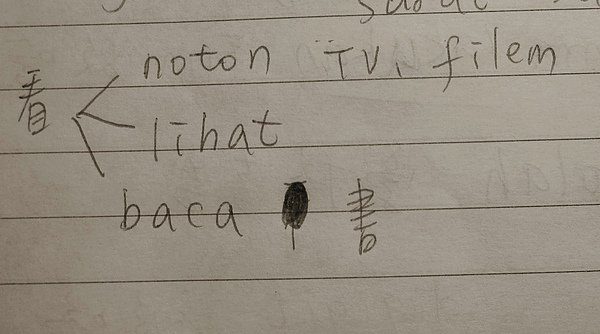 看 noton TV, filem
lihat
baca 書